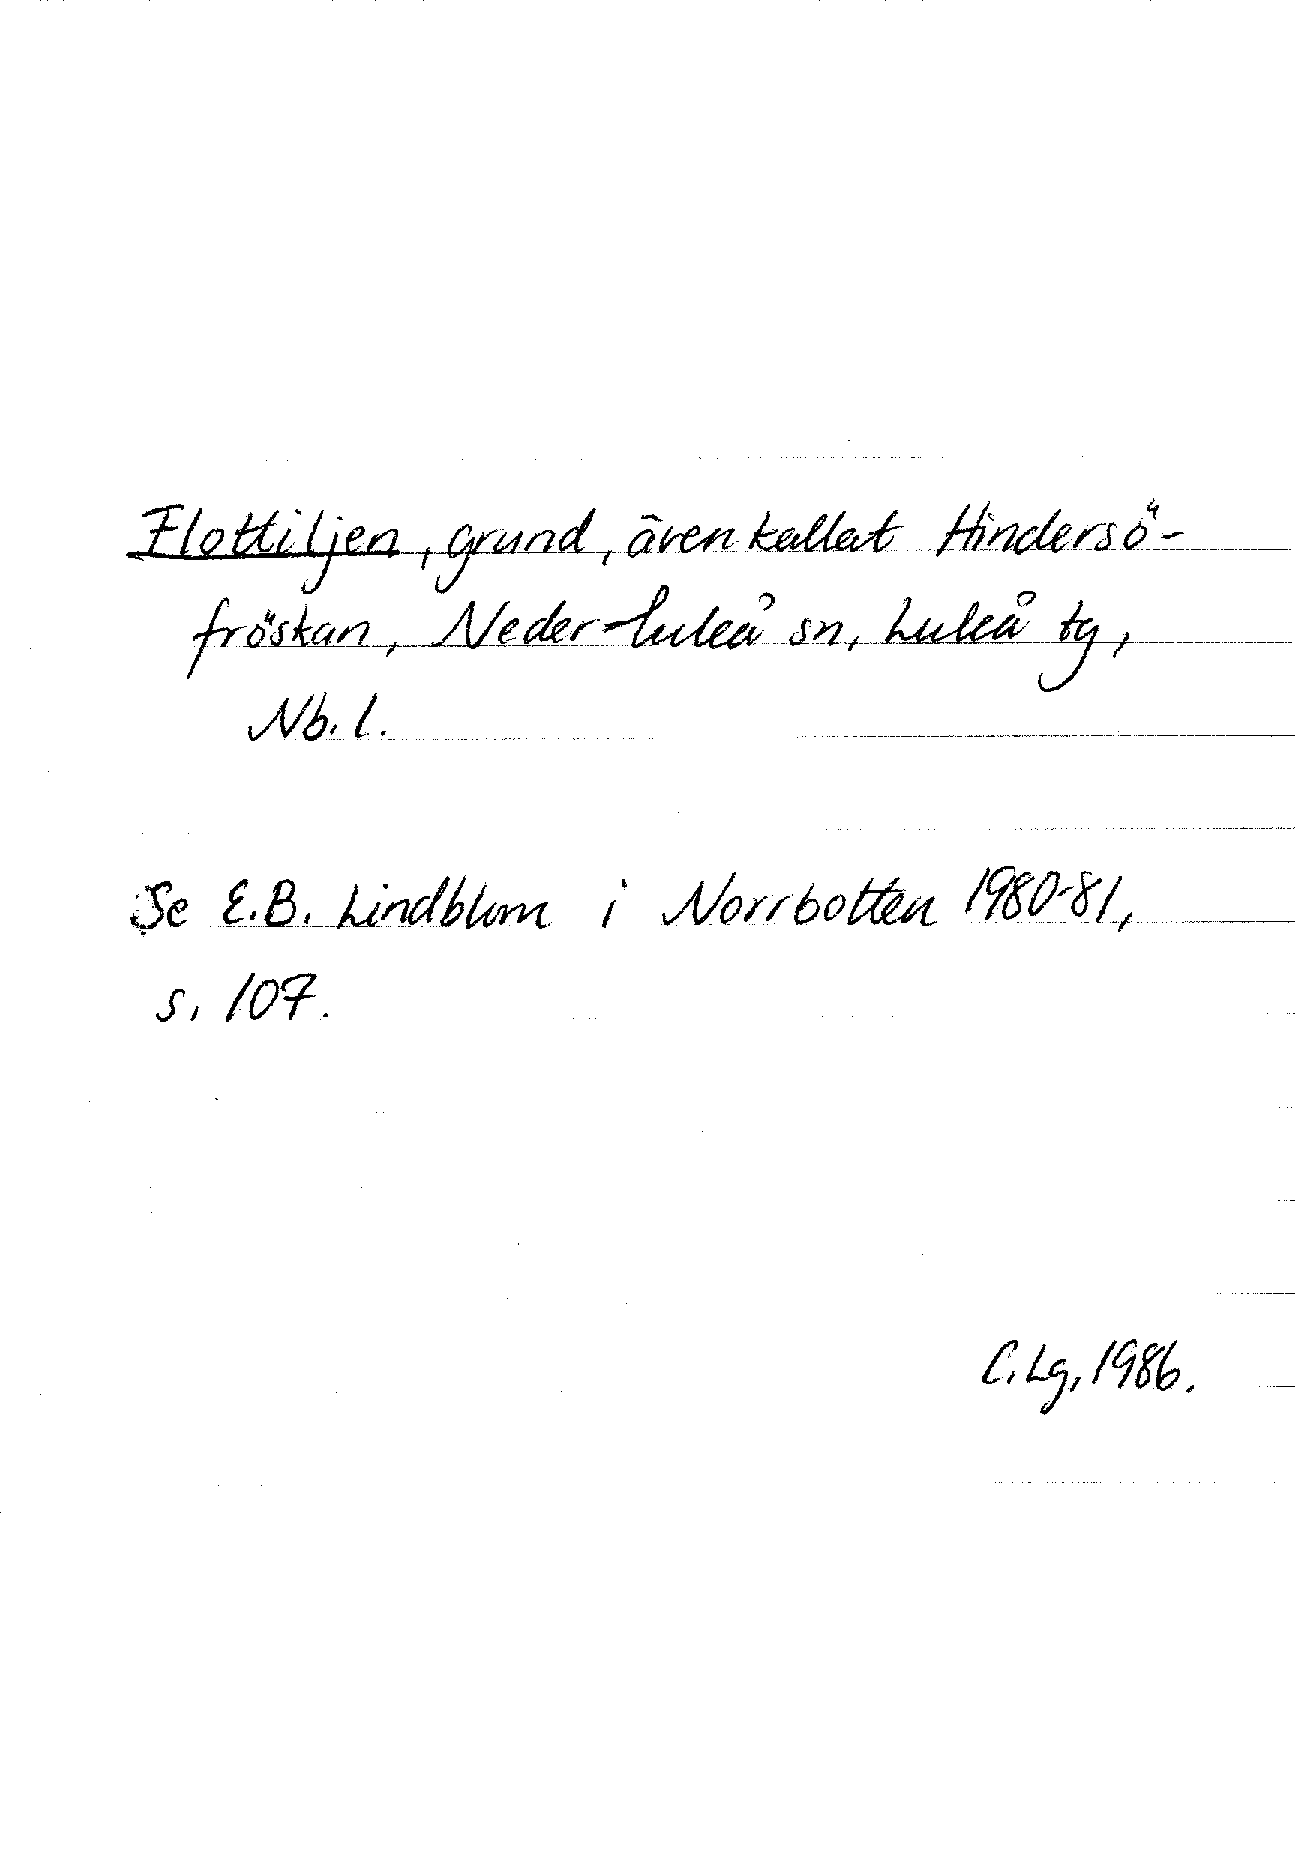 Flottiljen, grund, även kallat Hindersö-
fröskan, Neder-Luleå sn, Luleå tg,
Nb. l.
Se E.B. Lindblom i Norrbotten 1980-81,
s. 107.
C. Lg, 1986.